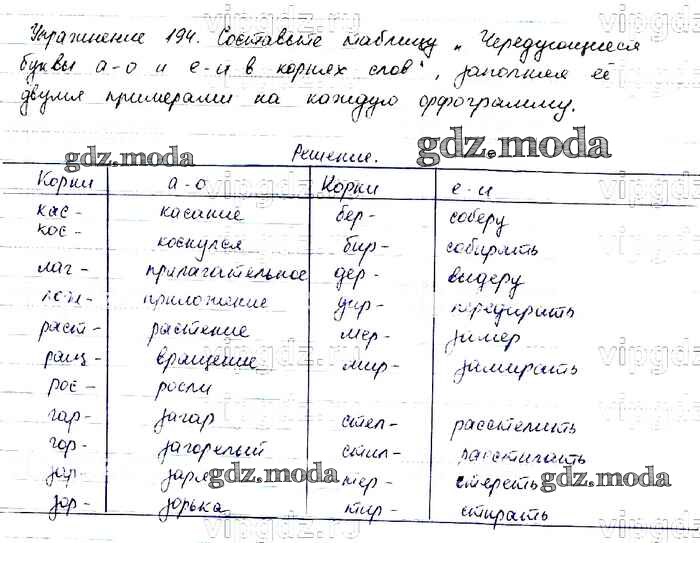 Упражнение 194. Составьте таблицу „Чередующиеся
буквы а-о и е-и в корнях слов", заполняя её
двумя примерами на каждую орфограмму.
Решение.
gdz.moda gdz.moda
Корни а-о Корни е-и
кас- касание бер- соберу
кос- коснулся бир- собирать
лаг- прилагательное дер- выдеру
лож- приложение дир-
раст- растение мер- замер
ращ- вращение мир- замирать
рос- росли
гар- загар стел- расстелить
гор- загорелый стил-
зар- заря тер- стереть
gdz.moda gdz.moda
зор- зорька тир- стирать
vipgdz.ru